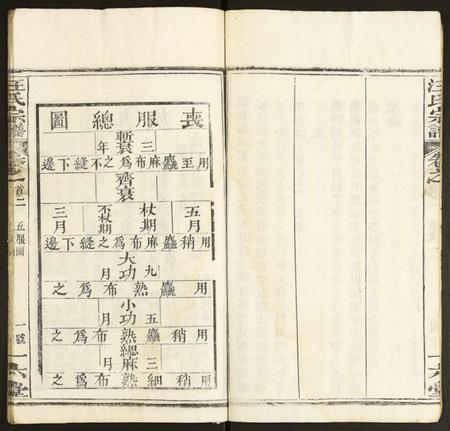 汪氏宗譜
卷之
首二
五服圖
一號
一六堂
喪服總圖
斬衰三年
用至麤麻布為之不縫下邊
齊衰
五月
杖期
不杖期
三月
用稍麤麻布為之縫下邊
大功九月
用麤熟布為之
小功五月
用稍麤熟布為之
緦麻三月
用稍細熟布為之
汪氏宗譜
卷之
一六堂